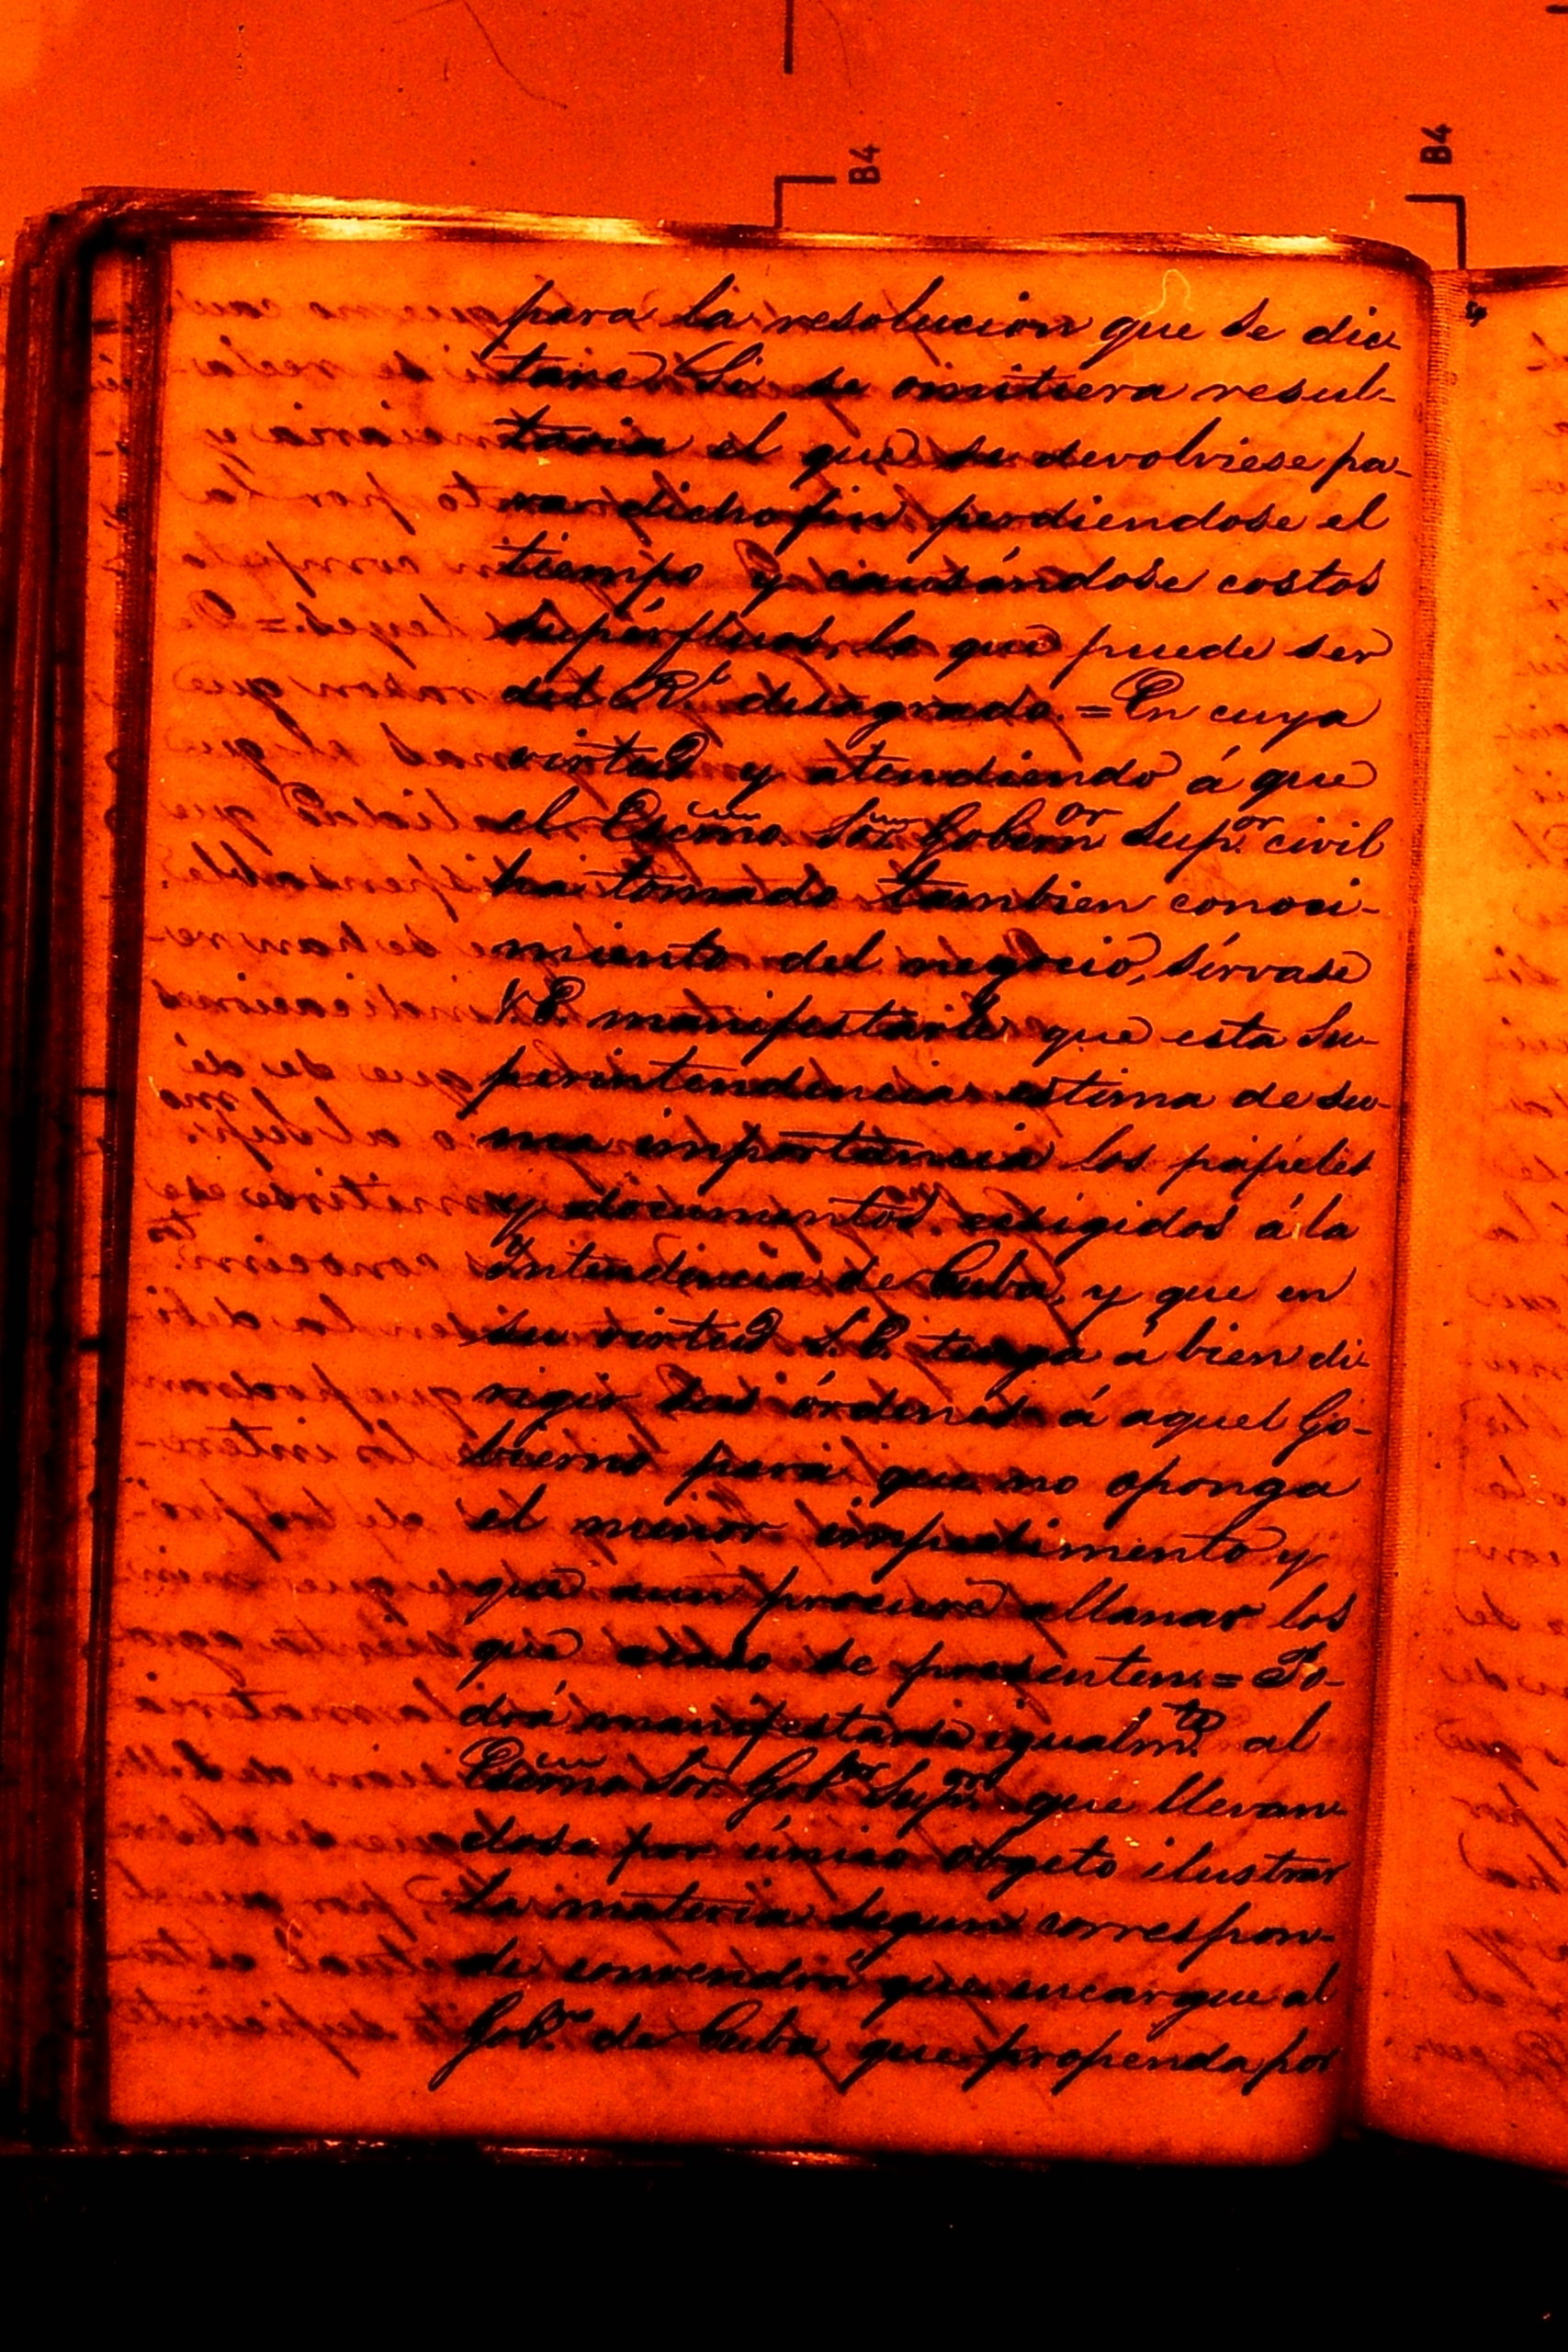 B4
B4
para la resolucion que se dic-
tare. Si se omitiera resul-
taria el que se devolviese pa-
ra dicho fin perdiendose el
tiempo y causándose costos
supérfluos, lo que puede ser
del Rl. desagrado. = En cuya
virtud y atendiendo á que
el Escmo. Sor. Gobernor Supor. civil
ha tomado tambien conoci-
miento del negocio, sírvase
V.E. manifestarle que esta Su-
perintendencia estima de su-
ma importancia los papeles
y documentos exigidos á la
Intendencia de Cuba, y que en
su virtud S.E. tenga á bien di-
rigir sus órdenes á aquel Go-
bierno para que no oponga
el menor impedimento y
que aun procure allanar los
que se presenten = Po-
drá manifestarse igualmte. al
Escmo Sor. Gobor. Supor. que llevan-
dose por único objeto ilustrar
la materia segun correspon-
de convendrá que encargue al
Gobno. de Cuba que propenda por